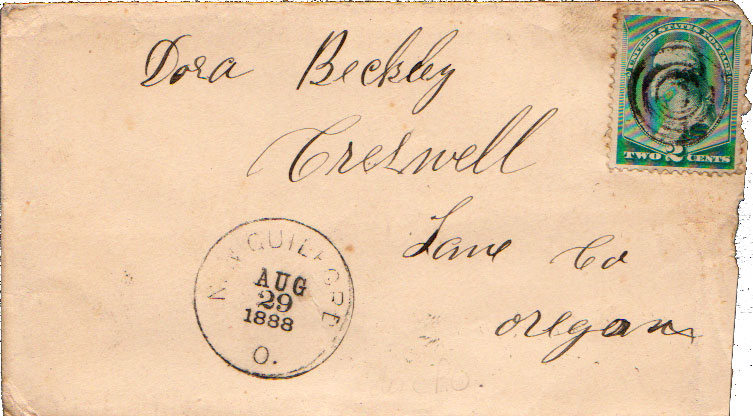 Dora Beckley
Creswell
Lane Co
Oregon
UNITED STATES POSTAGE
TWO 2 CENTS
NEW GUILFORD
AUG
29
1888
O.